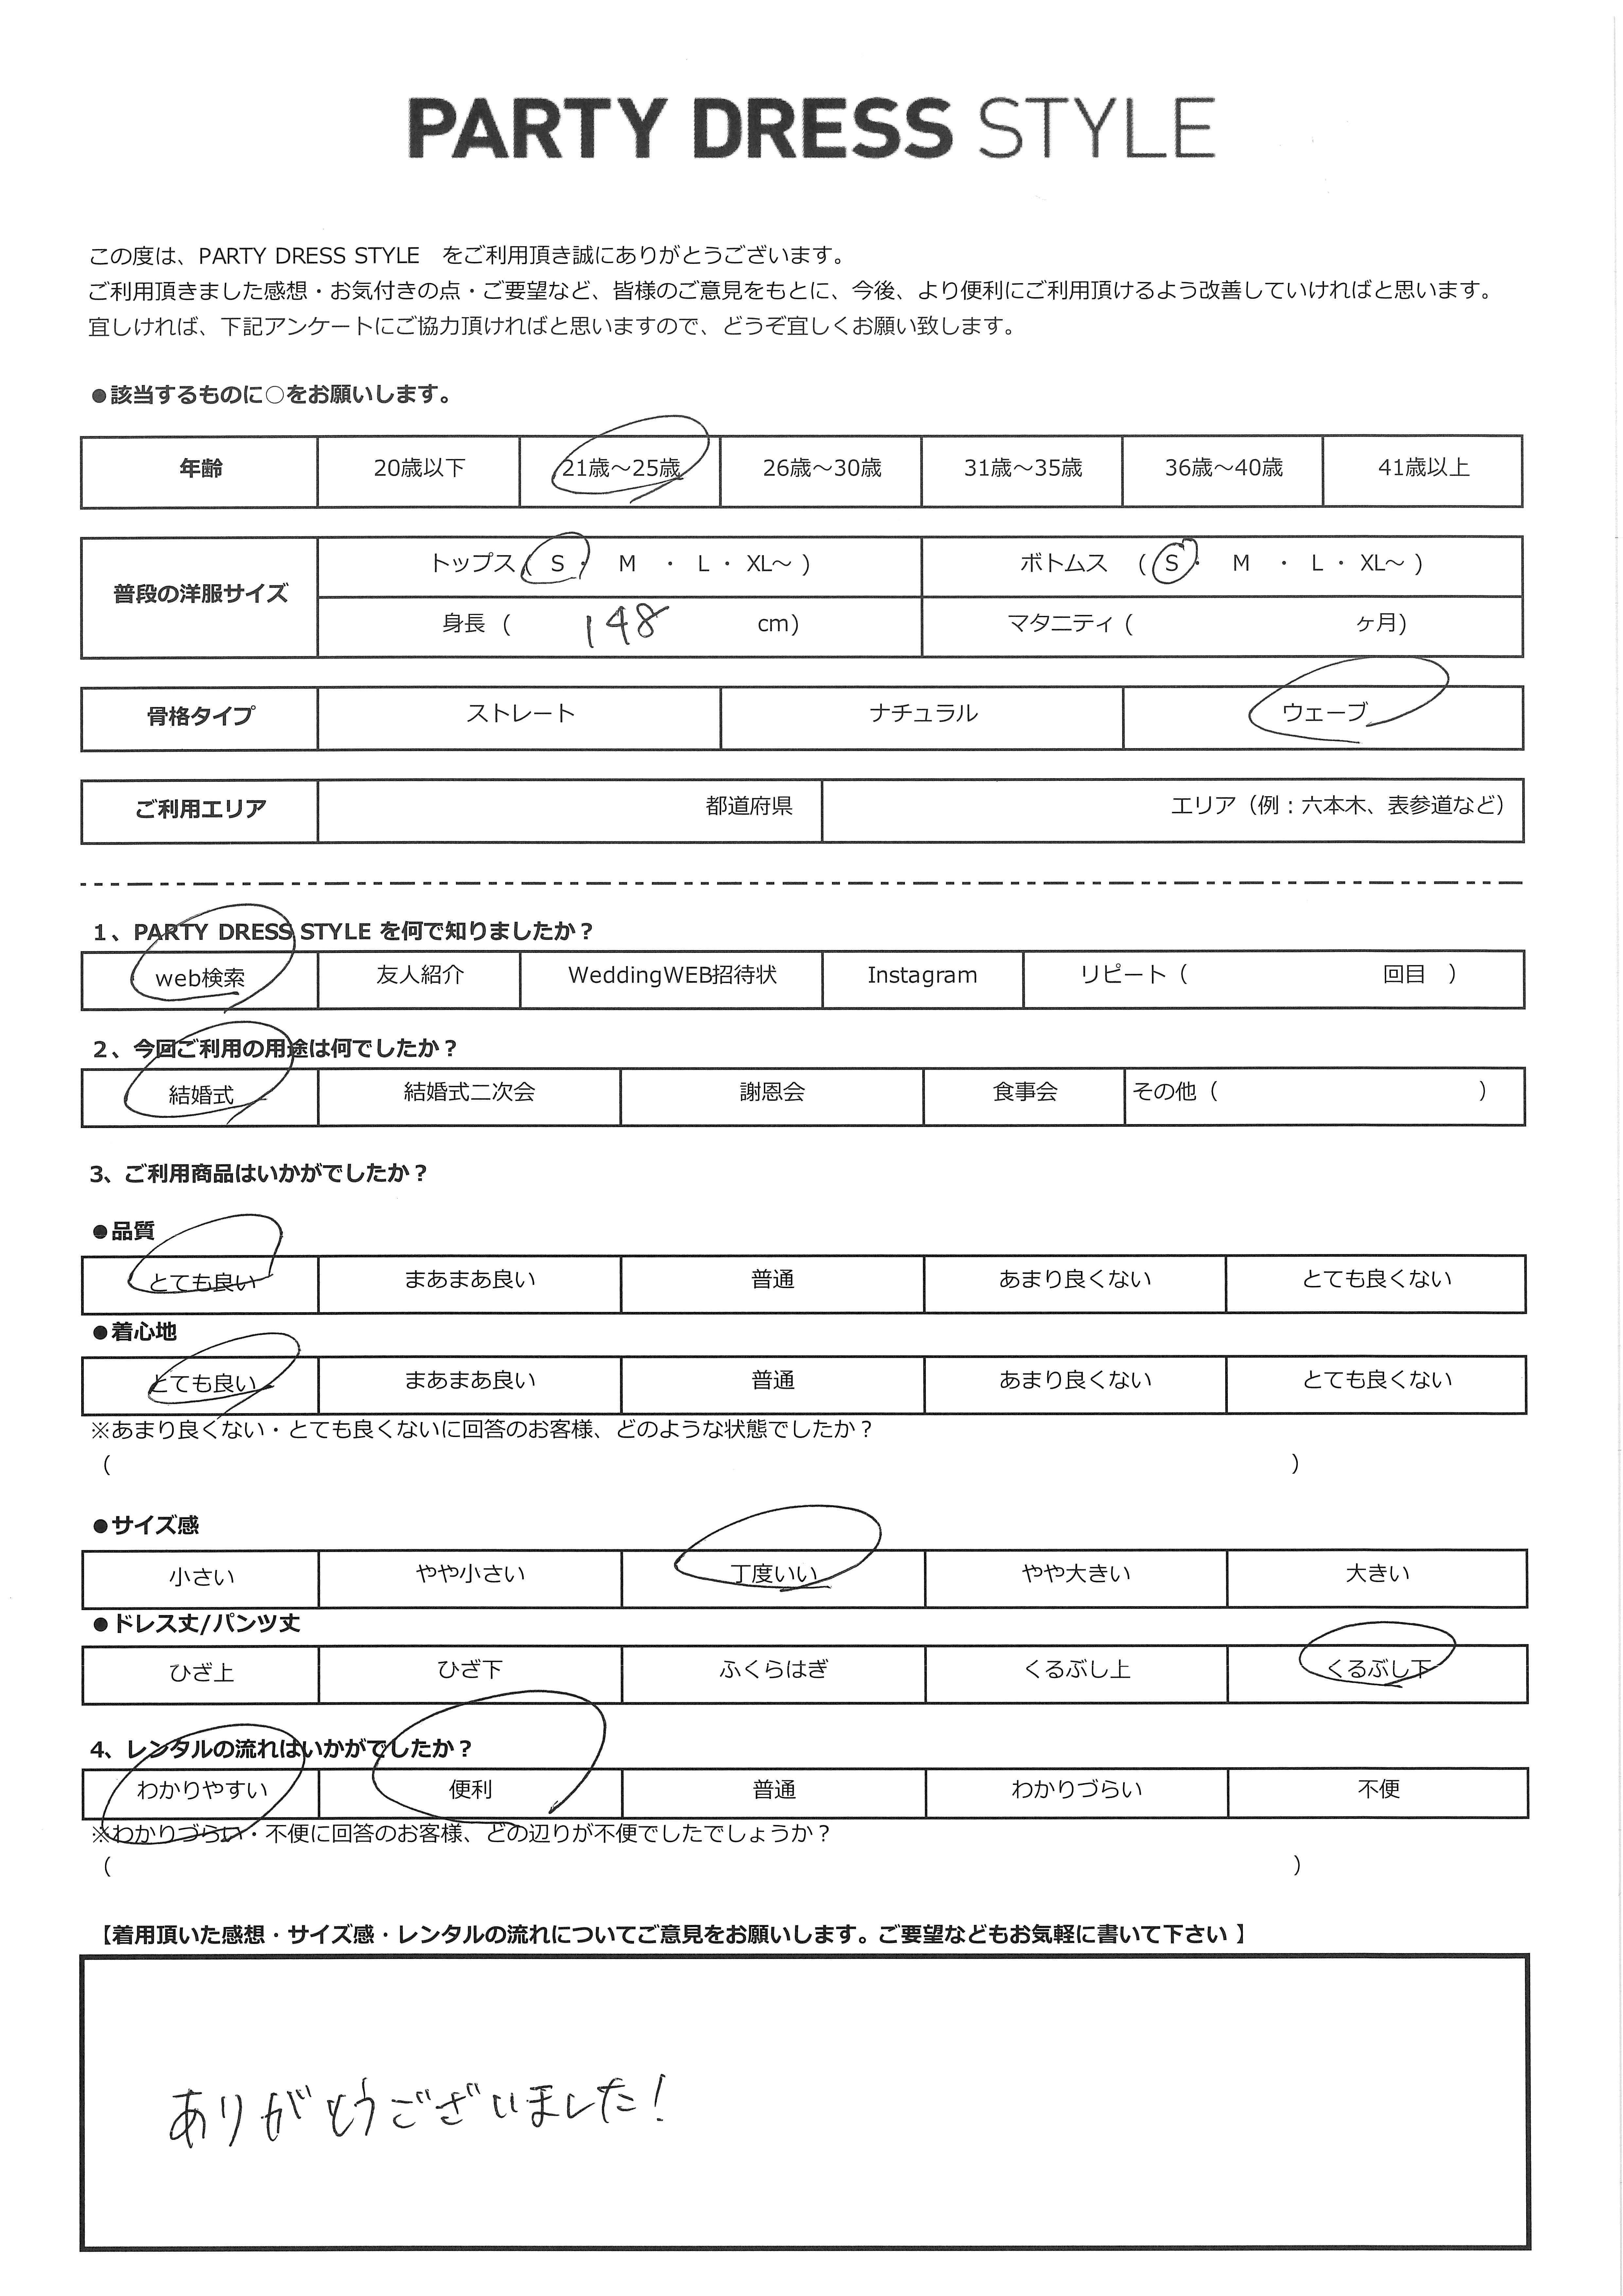 PARTY DRESS STYLE
この度は、PARTY DRESS STYLE　をご利用頂き誠にありがとうございます。
ご利用頂きました感想・お気付きの点・ご要望など、皆様のご意見をもとに、今後、より便利にご利用頂けるよう改善していければと思います。
宜しければ、下記アンケートにご協力頂ければと思いますので、どうぞ宜しくお願い致します。
●該当するものに○をお願いします。
年齢 20歳以下 21歳～25歳 26歳～30歳 31歳～35歳 36歳～40歳 41歳以上
普段の洋服サイズ トップス ( S ・ M ・ L ・ XL～ ) ボトムス ( S ・ M ・ L ・ XL～ )
身長 ( 148 cm) マタニティ ( ヶ月)
骨格タイプ ストレート ナチュラル ウェーブ
ご利用エリア 都道府県 エリア（例：六本木、表参道など）
1、PARTY DRESS STYLE を何で知りましたか？
web検索 友人紹介 WeddingWEB招待状 Instagram リピート（ 回目 ）
2、今回ご利用の用途は何でしたか？
結婚式 結婚式二次会 謝恩会 食事会 その他（ ）
3、ご利用商品はいかがでしたか？
●品質
とても良い まあまあ良い 普通 あまり良くない とても良くない
●着心地
とても良い まあまあ良い 普通 あまり良くない とても良くない
※あまり良くない・とても良くないに回答のお客様、どのような状態でしたか？
（ ）
●サイズ感
小さい やや小さい 丁度いい やや大きい 大きい
●ドレス丈/パンツ丈
ひざ上 ひざ下 ふくらはぎ くるぶし上 くるぶし下
4、レンタルの流れはいかがでしたか？
わかりやすい 便利 普通 わかりづらい 不便
※わかりづらい・不便に回答のお客様、どの辺りが不便でしたでしょうか？
（ ）
【着用頂いた感想・サイズ感・レンタルの流れについてご意見をお願いします。ご要望などもお気軽に書いて下さい 】
ありがとうございました！